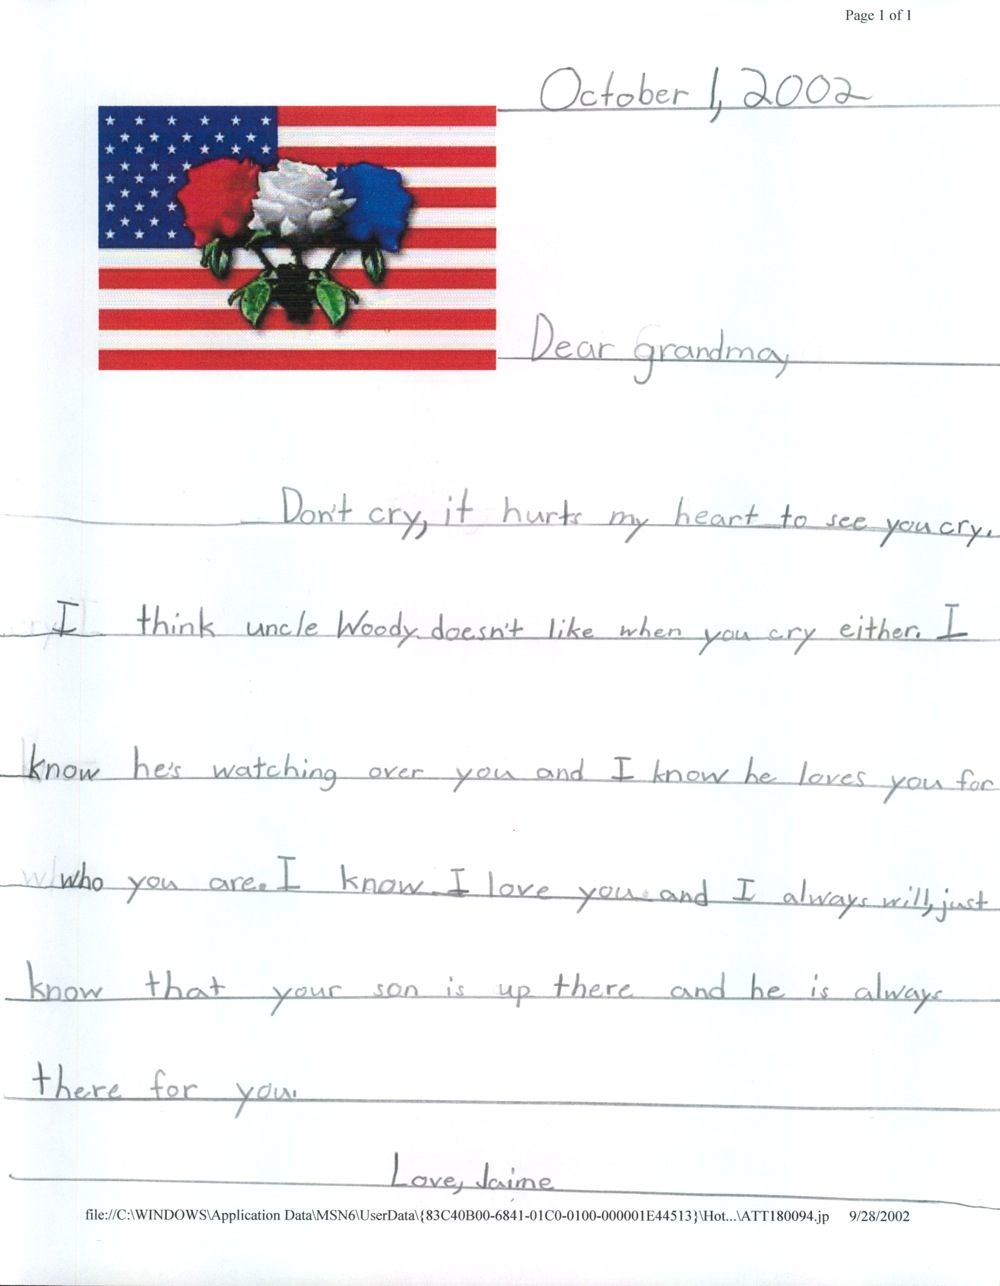 Page 1 of 1
October 1, 2002
Dear grandma,
Don't cry, it hurts my heart to see you cry.
I think uncle Woody doesn't like when you cry either. I
know he's watching over you and I know he loves you for
who you are. I know I love you and I always will, just
know that your son is up there and he is always
there for you.
Love, Jaime
file://C:\WINDOWS\Application Data\MSN6\UserData\{83C40B00-6841-01C0-0100-000001E44513}\Hot...\ATT180094.jp 9/28/2002